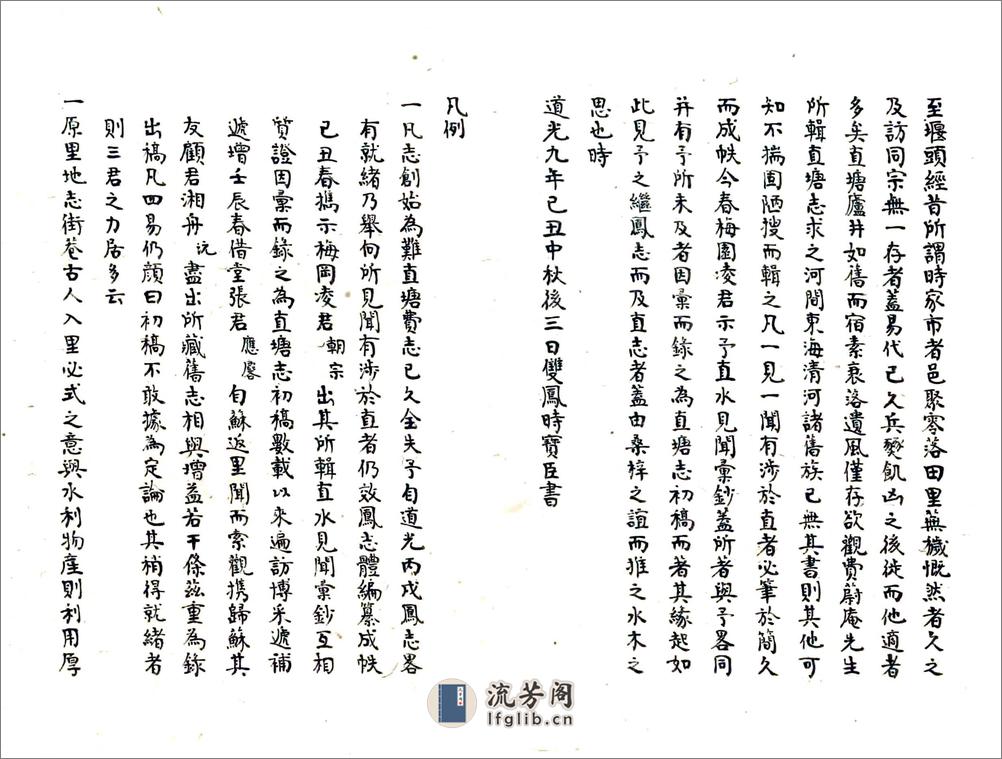 至堰頭經昔所謂時家市者邑聚零落田里蕪穢慨然者久之
及訪同宗無一存者蓋易代已久兵燹飢凶之後徙而他適者
多矣直塘廬井如舊而宿素衰落遺風僅存欲觀費蔚庵先生
所輯直塘志求之河間東海清河諸舊族已無其書則其他可
知不揣固陋搜而輯之凡一見一聞有涉於直者必筆於簡久
而成帙今春梅園凌君示予直水見聞彙鈔蓋所著與予畧同
并有予所未及者因彙而錄之為直塘志初稿而著其緣起如
此見予之繼鳳志而及直志者蓋由桑梓之誼而推之水木之
思也時
道光九年己丑中秋後三日雙鳳時寶臣書
凡例
一凡志創始為難直塘費志已久全失予自道光丙戌鳳志畧
有就緒乃舉向所見聞有涉於直者仍效鳳志體編纂成帙
己丑春攜示梅岡凌君朝宗出其所輯直水見聞彙鈔互相
質證因彙而錄之為直塘志初稿數載以來遍訪博采遞補
遞增壬辰春借堂張君應麐自蘇返里聞而索觀携歸蘇其
友顧君湘舟沅盡出所藏舊志相與增益若干條茲重為錄
出稿凡四易仍顏曰初稿不敢據為定論也其補得就緒者
則三君之力居多云
一原里地志街巷古人入里必式之意與水利物產則利用厚
流芳阁
lfglib.cn